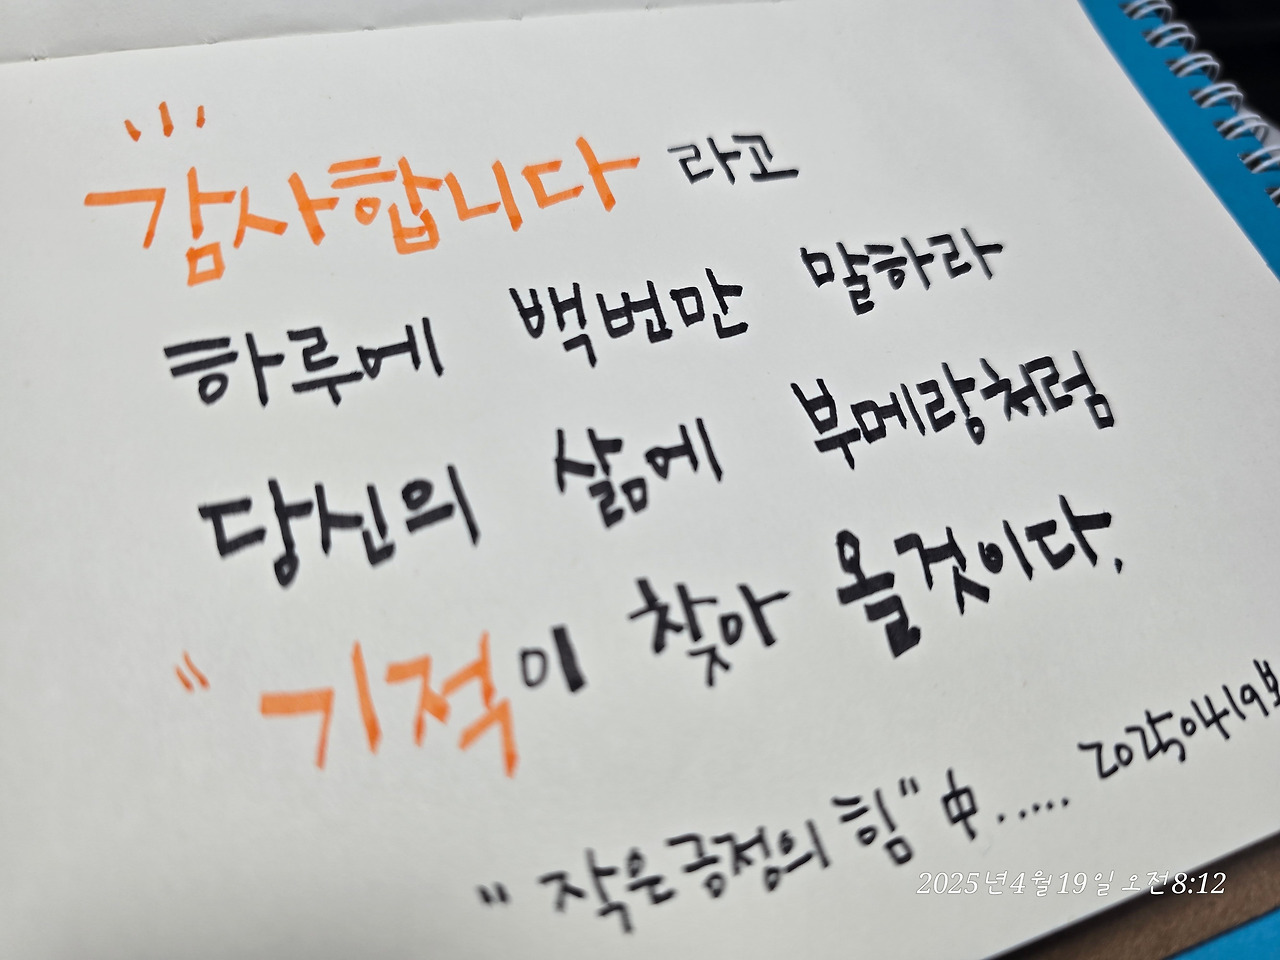 감사합니다 라고
하루에 백번만 말하라
당신의 삶에 부메랑처럼
"기적이 찾아 올것이다.
"작은긍정의 힘" 中.....
20250419
2025년4월19일 오전8:12